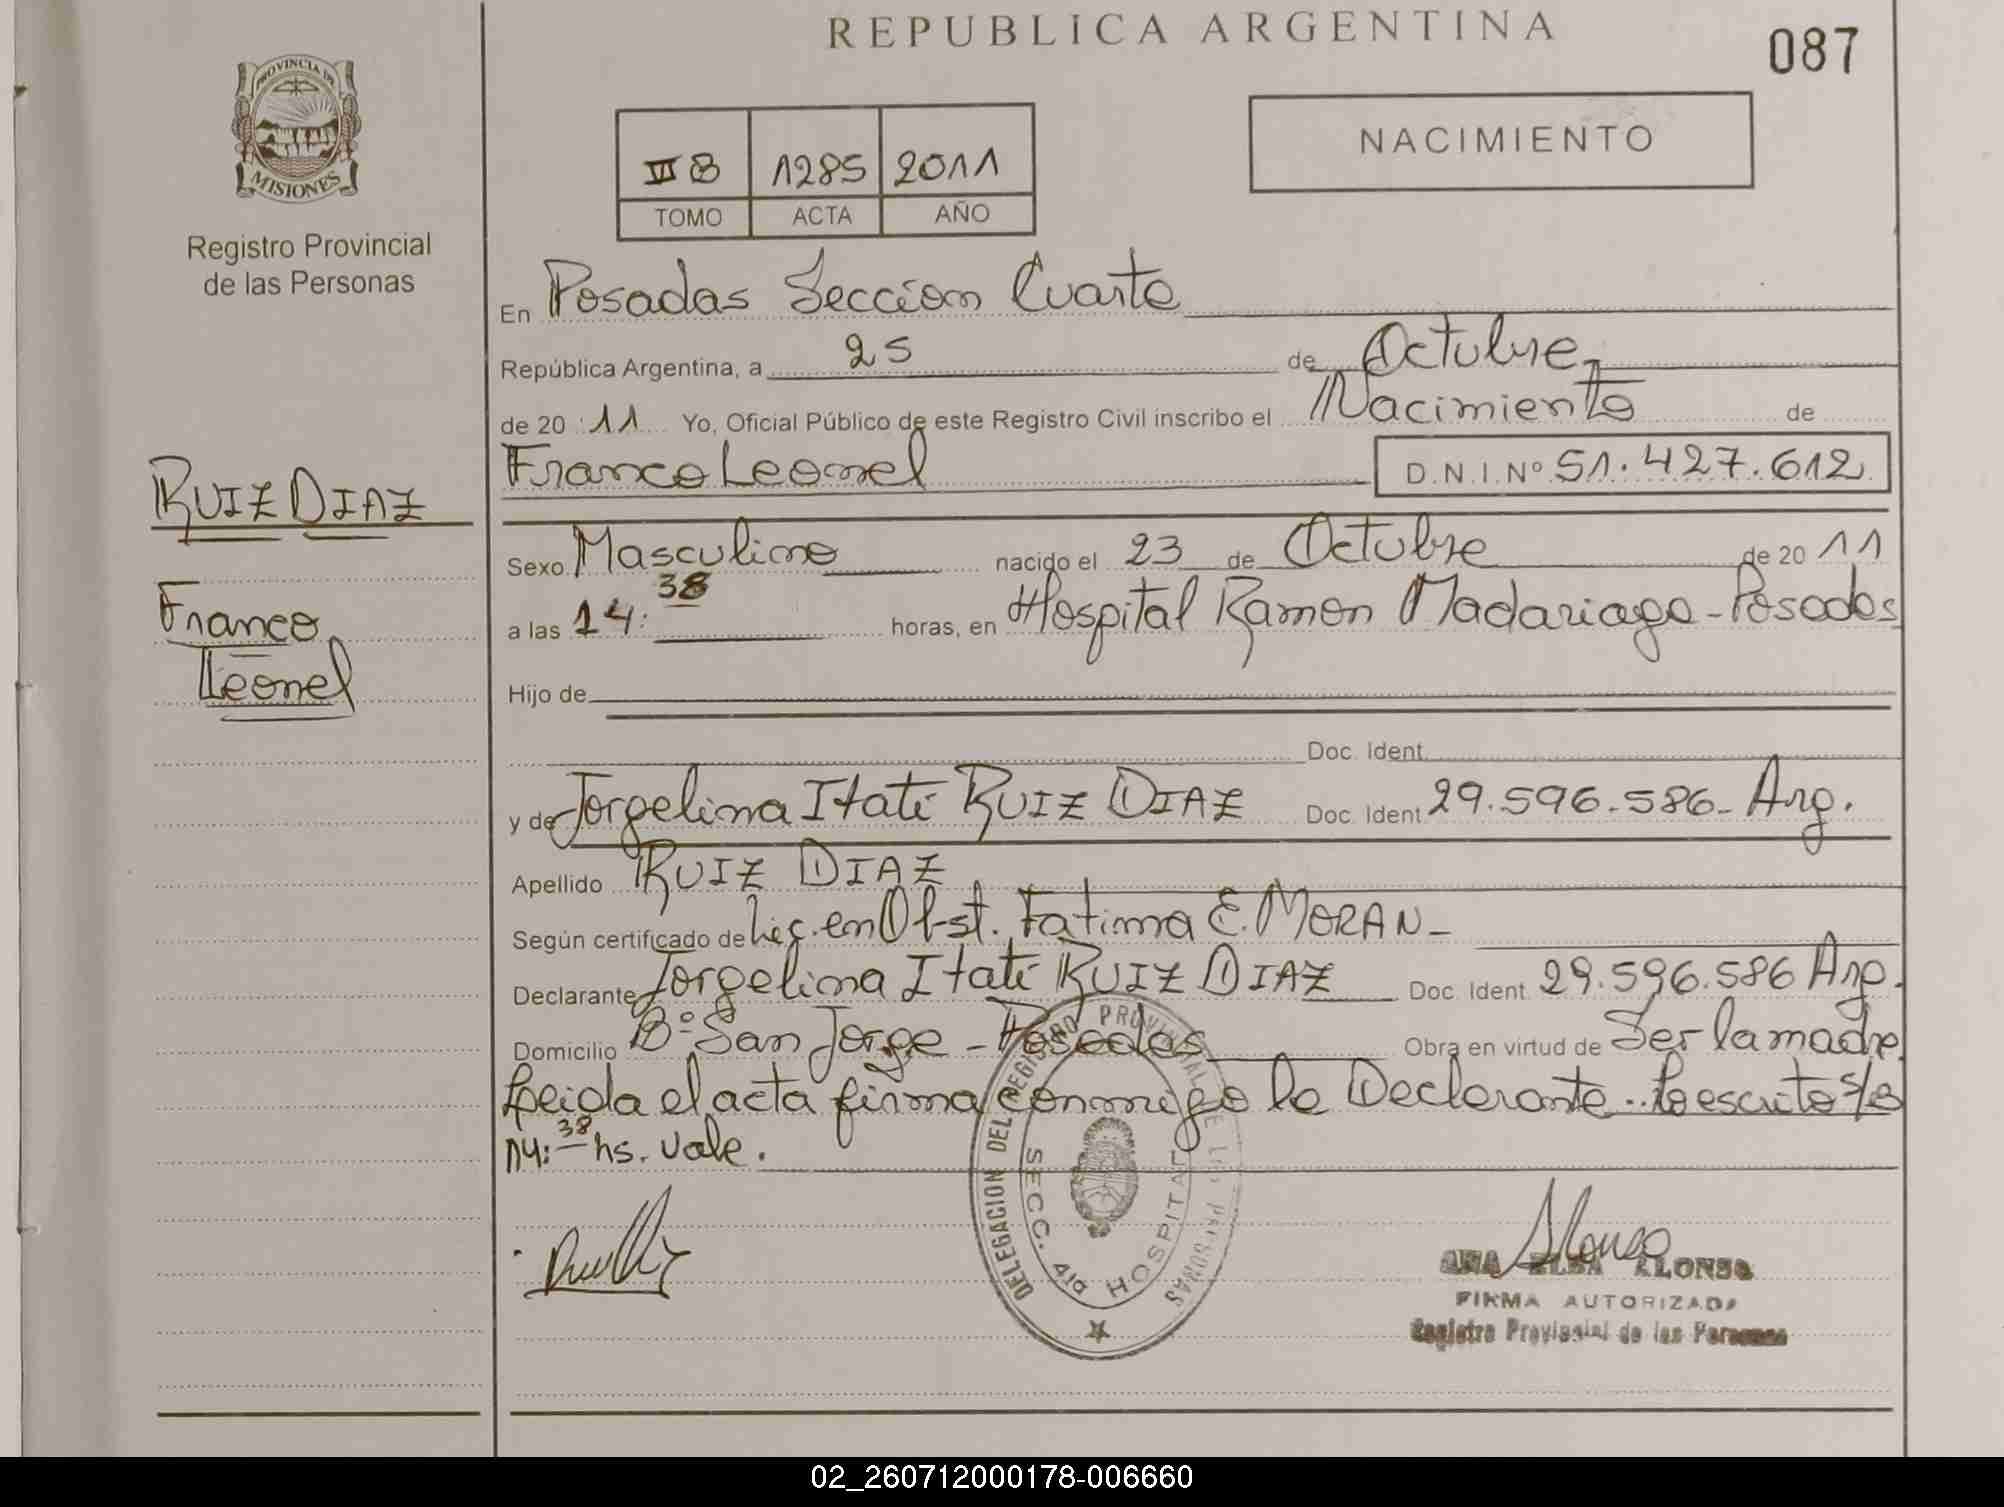 REPUBLICA ARGENTINA
087
PROVINCIA DE
MISIONES
Registro Provincial
de las Personas
VII B 1285 2011
TOMO ACTA AÑO
NACIMIENTO
En Posadas Seccion Cuarta
República Argentina, a 25 de Octubre
de 2011 Yo, Oficial Público de este Registro Civil inscribo el Nacimiento de
Franco Leonel D.N.I.Nº 51.427.612
RUIZ DIAZ
Franco
Leonel
Sexo Masculino nacido el 23 de Octubre de 2011
a las 14:38 horas, en Hospital Ramon Madariaga - Posadas
Hijo de
Doc. Ident
y de Jorgelina Itati RUIZ DIAZ Doc. Ident 29.596.586- Arg.
Apellido RUIZ DIAZ
Según certificado de Lic. en Obst. Fatima E. MORAN-
Declarante Jorgelina Itati RUIZ DIAZ Doc. Ident. 29.596.586 Arg.
Domicilio Bº San Jorge - Posadas Obra en virtud de Ser la madre
Leida el acta firma conmigo la Declarante.. Lo escrito s/
14:38 hs. vale.
DELEGACION DEL REGISTRO PROVINCIAL DE LAS PERSONAS
SECC. 4ta HOSPITAL
Alonso
ANA ELBA ALONSO
FIRMA AUTORIZADA
Registro Provincial de las Personas
02_260712000178-006660